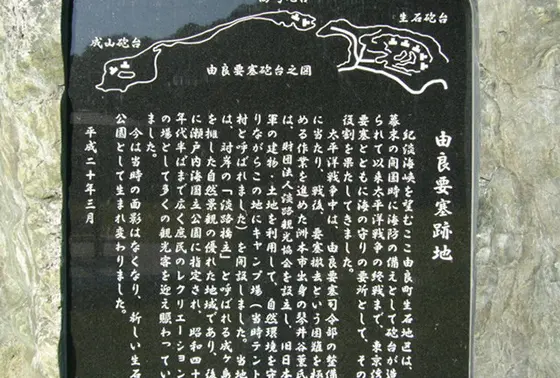 生石砲台
成山砲台
由良要塞砲台之図
由良要塞跡地
紀淡海峡を望むここ由良町生石地区は、
幕末の開国時に海防の備えとして砲台が造
られて以来太平洋戦争の終戦まで、東京
要塞とともに海の守りの要所として、その
役割を果たしてきました。
太平洋戦争中は、由良要塞司令部の整備
に当たり、戦後、要塞撤去という困難を極
める作業を進めた洲本市出身の琴井谷薫氏
は、財団法人淡路観光協会を設立し、旧日本
軍の建物・土地を利用して、自然環境を守
りながらこの地にキャンプ場(当時テント
村と呼ばれました)を開設しました。当地
は、対岸の「淡路橋立」と呼ばれる成ヶ島
を推した自然景観の優れた地域であり、後
に瀬戸内海国立公園に指定され、昭和四十
年代半ばまで広く庶民のレクリエーション
の場として多くの観光客を迎え賑わってい
ました。
今は当時の面影はなくなり、新しい生石
公園として生まれ変わりました。
平成二十年三月